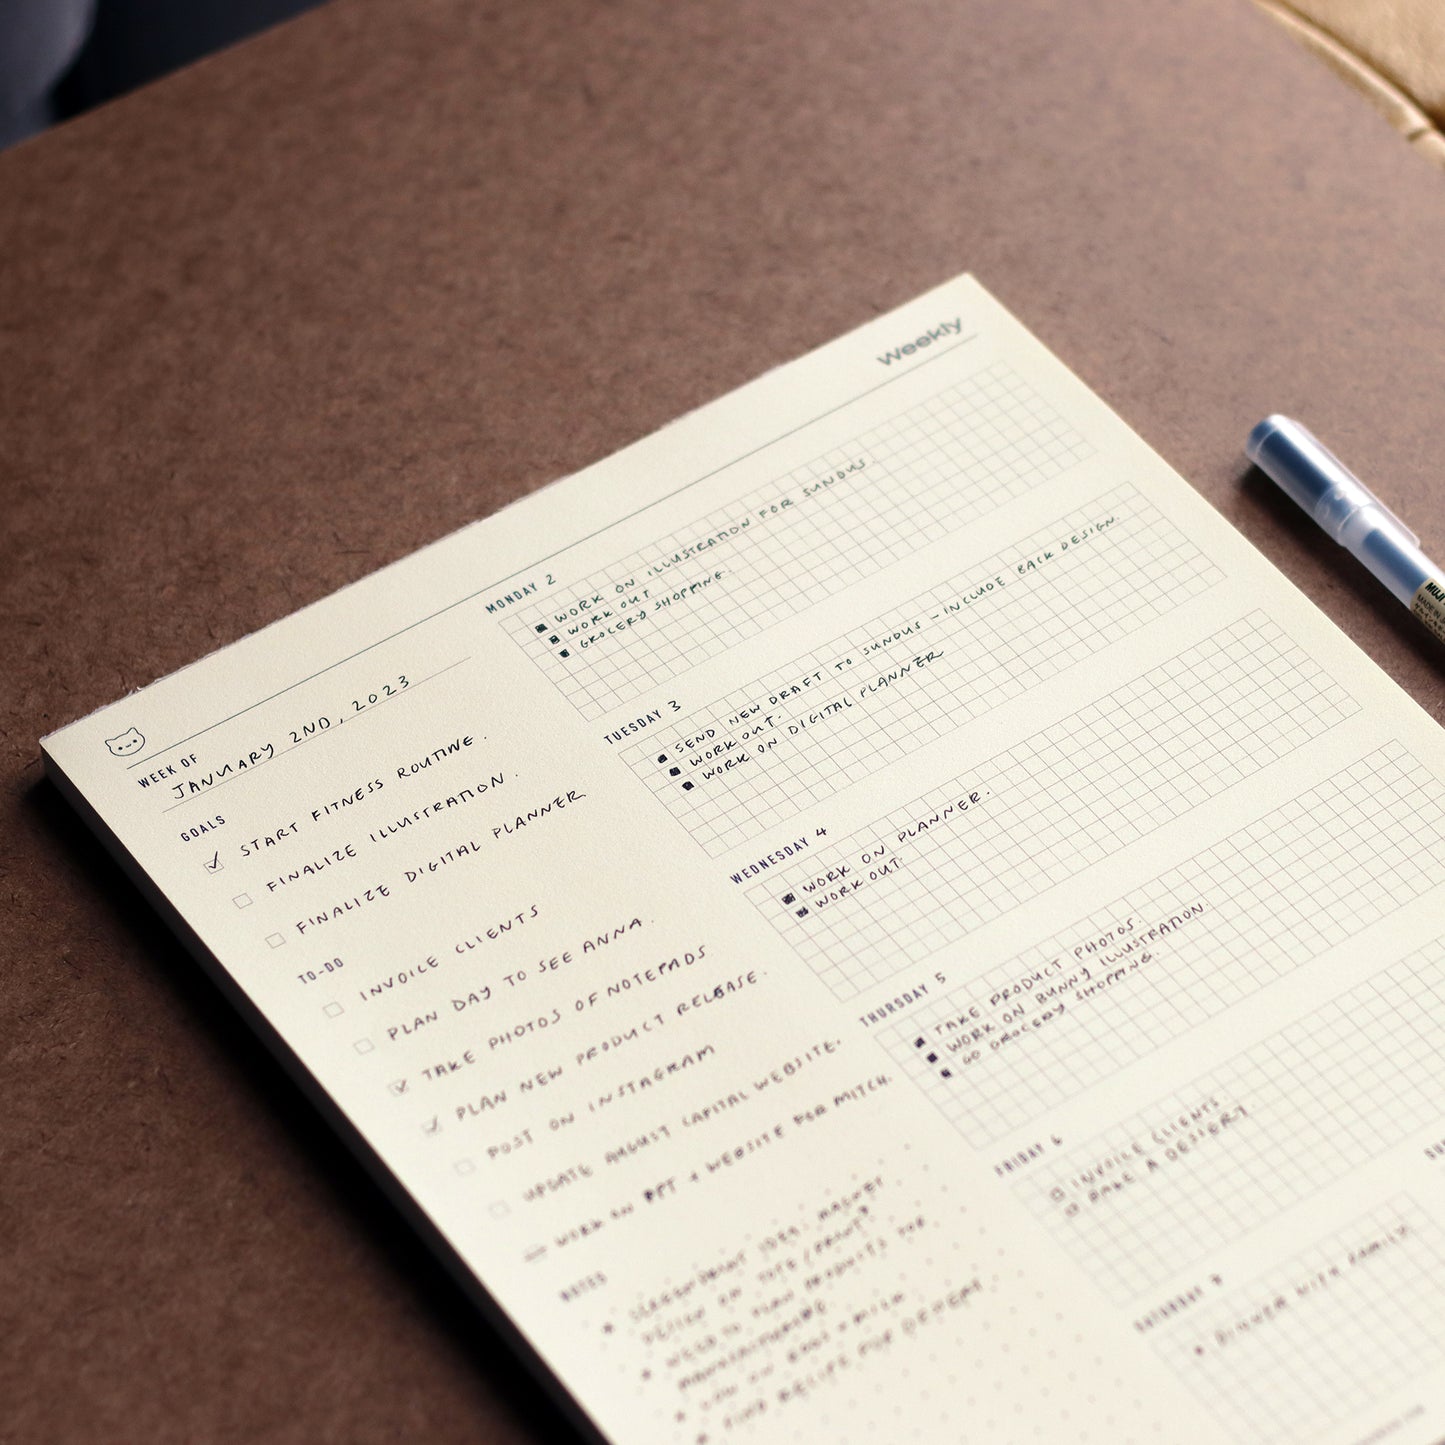 Weekly
WEEK OF
JANUARY 2ND, 2023
GOALS
START FITNESS ROUTINE.
FINALIZE ILLUSTRATION.
FINALIZE DIGITAL PLANNER
TO-DO
INVOICE CLIENTS
PLAN DAY TO SEE ANNA.
TAKE PHOTOS OF NOTEPADS
PLAN NEW PRODUCT RELEASE.
POST ON INSTAGRAM
UPDATE AUGUST CAPITAL WEBSITE.
WORK ON PPT + WEBSITE FOR MITCH.
NOTES
SCREENPRINT IDEA: MAGNET
DESIGN ON TOTE/PRINT?
NEED TO PLAN PRODUCTS FOR
MANUFACTURING.
LOW ON EGGS + MILK
FIND RECIPE FOR DESSERT
MONDAY 2
WORK ON ILLUSTRATION FOR SUNDUS.
WORK OUT
GROCERY SHOPPING.
TUESDAY 3
SEND NEW DRAFT TO SUNDUS - INCLUDE BACK DESIGN.
WORK OUT.
WORK ON DIGITAL PLANNER
WEDNESDAY 4
WORK ON PLANNER.
WORK OUT.
THURSDAY 5
TAKE PRODUCT PHOTOS.
WORK ON BUNNY ILLUSTRATION.
GO GROCERY SHOPPING.
FRIDAY 6
INVOICE CLIENTS
BAKE A DESSERT.
SATURDAY
DINNER WITH FAMILY
MUJI
MADE IN